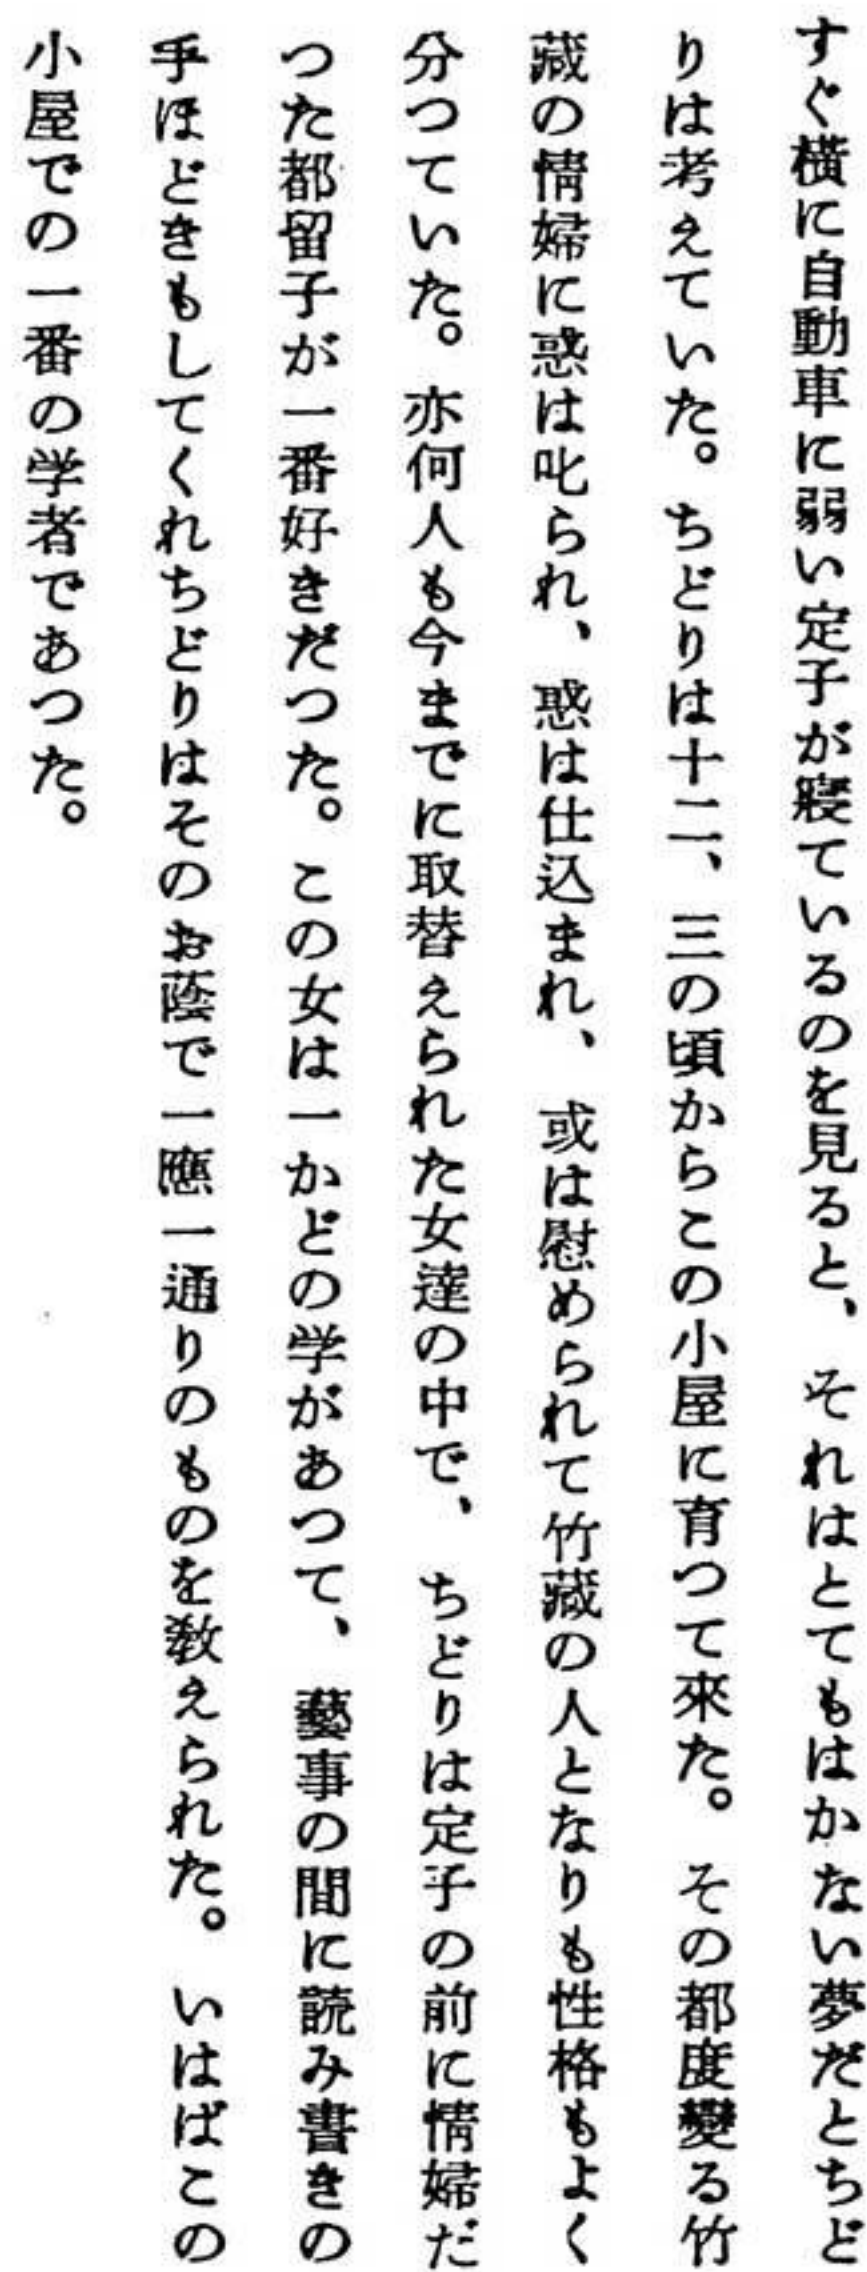 すぐ横に自動車に弱い定子が寝ているのを見ると、それはとてもはかない夢だとちど
りは考えていた。ちどりは十二、三の頃からこの小屋に育つて來た。その都度變る竹
藏の情婦に惑は叱られ、惑は仕込まれ、或は慰められて竹藏の人となりも性格もよく
分つていた。亦何人も今までに取替えられた女達の中で、ちどりは定子の前に情婦だ
つた都留子が一番好きだつた。この女は一かどの学があつて、藝事の間に読み書きの
手ほどきもしてくれちどりはそのお蔭で一應一通りのものを教えられた。いはばこの
小屋での一番の学者であつた。